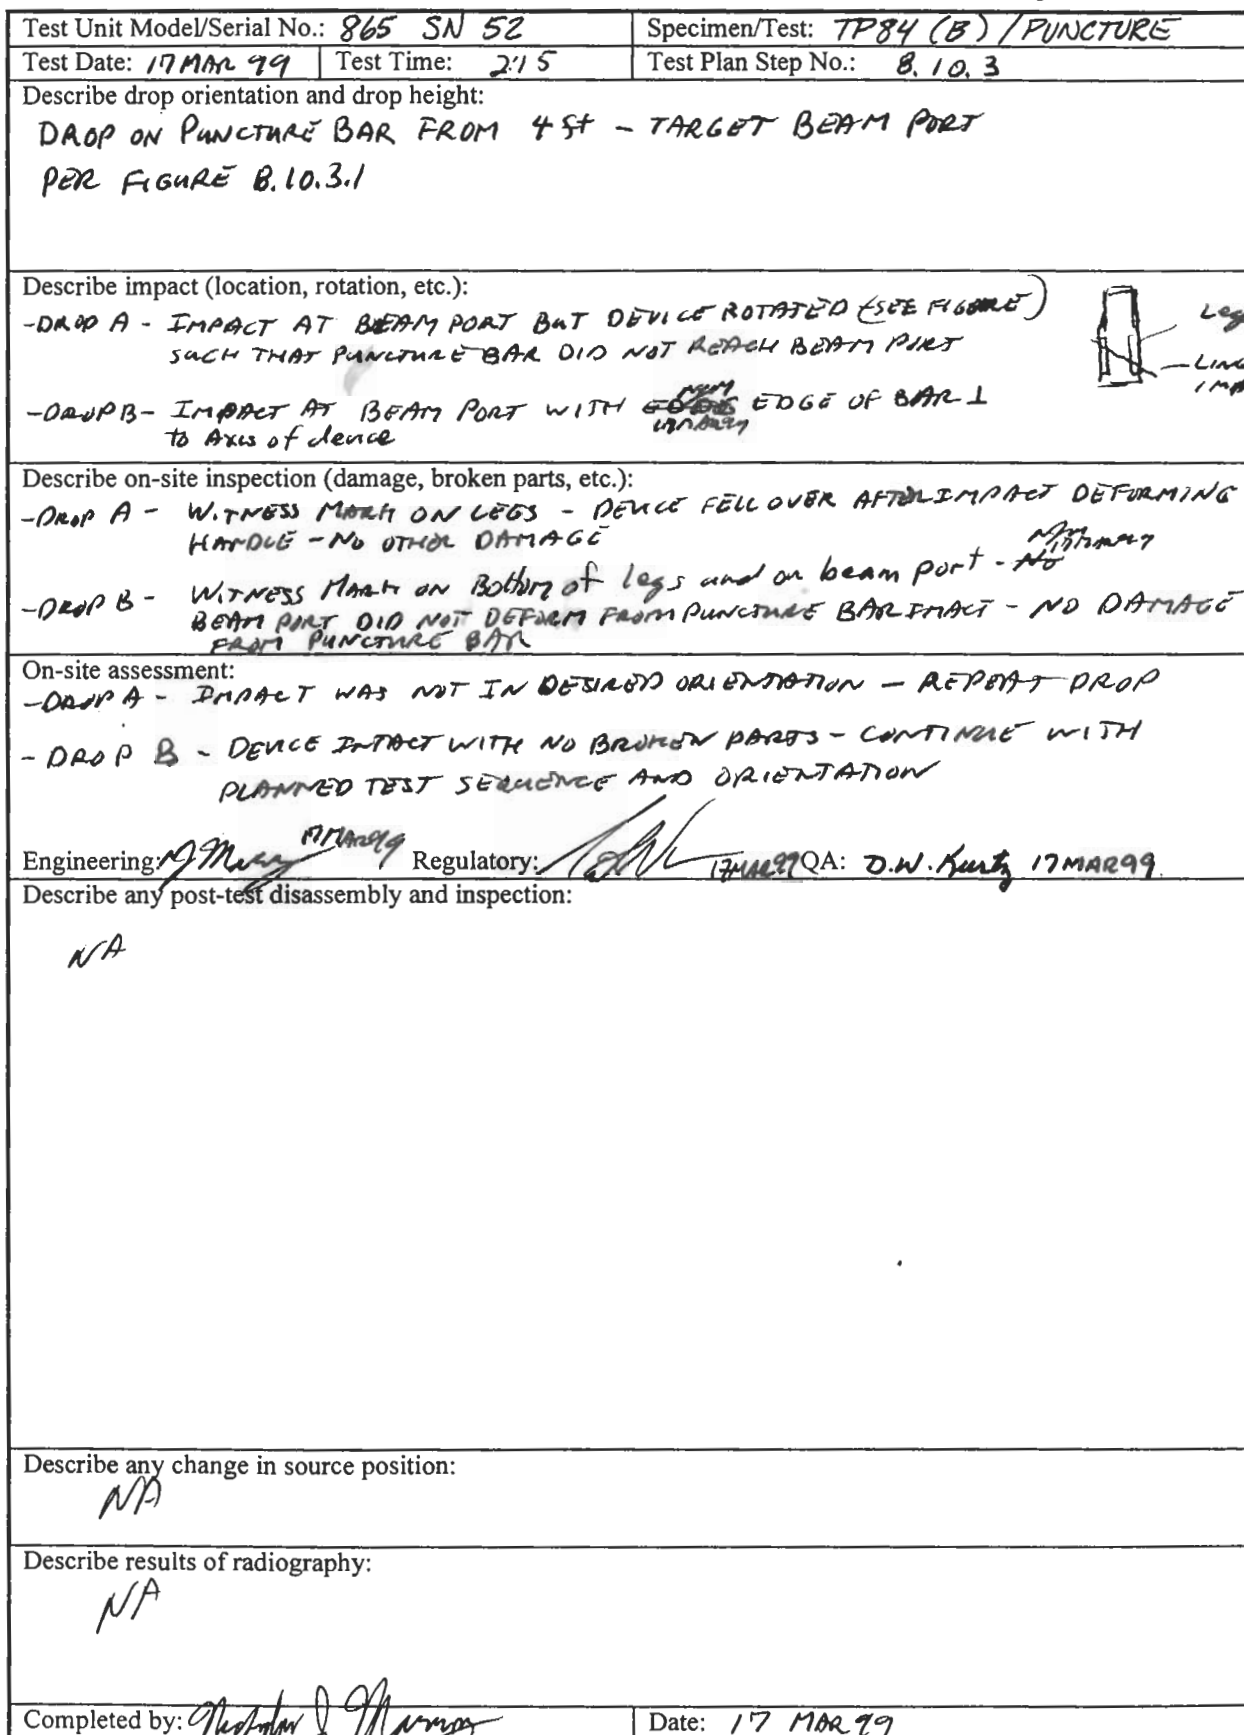 Test Unit Model/Serial No.: 865 SN 52 Specimen/Test: TP84 (B) / PUNCTURE
Test Date: 17 MAR 99 Test Time: 2:15 Test Plan Step No.: 8.10.3
Describe drop orientation and drop height:
DROP ON PUNCTURE BAR FROM 4 ft - TARGET BEAM PORT
PER FIGURE 8.10.3.1
Describe impact (location, rotation, etc.):
-DROP A - IMPACT AT BEAM PORT BUT DEVICE ROTATED (SEE FIGURE)
SUCH THAT PUNCTURE BAR DID NOT REACH BEAM PORT
Leg
LINE
IMPA
-DROP B - IMPACT AT BEAM PORT WITH EDGE OF BAR ⊥
NJM
17MAR99
to Axis of device
Describe on-site inspection (damage, broken parts, etc.):
-DROP A - WITNESS MARK ON LEGS - DEVICE FELL OVER AFTER IMPACT DEFORMING
HANDLE - NO OTHER DAMAGE
-DROP B - WITNESS MARK ON Bottom of legs and on beam port - No
NJM 17MAR99
BEAM PORT DID NOT DEFORM FROM PUNCTURE BAR IMACT - NO DAMAGE
FROM PUNCTURE BAR
On-site assessment:
-DROP A - IMPACT WAS NOT IN DESIRED ORIENTATION - REPEAT DROP
- DROP B - DEVICE INTACT WITH NO BROKEN PARTS - CONTINUE WITH
PLANNED TEST SEQUENCE AND ORIENTATION
Engineering: 17MAR99 Regulatory: 17MAR99 QA: D.W. Kurtz 17MAR99
Describe any post-test disassembly and inspection:
NA
Describe any change in source position:
NA
Describe results of radiography:
NA
Completed by: Date: 17 MAR 99